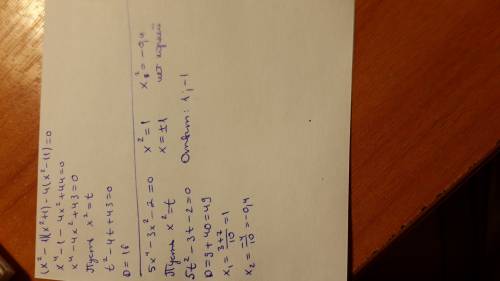 (x²-1)(x²+1)-4(x²-11)=0
x⁴-1-4x²+44=0
x⁴-4x²+43=0
Пусть x²=t
t²-4t+43=0
D=16
5x⁴-3x²-2=0
Пусть x²=t
5t²-3t-2=0
D=9+40=49
x₁=3+7/10=1
x₂=-4/10=-0,4
x²=1
x=±1
x²=-0,4
нет корней
Ответ: 1;-1